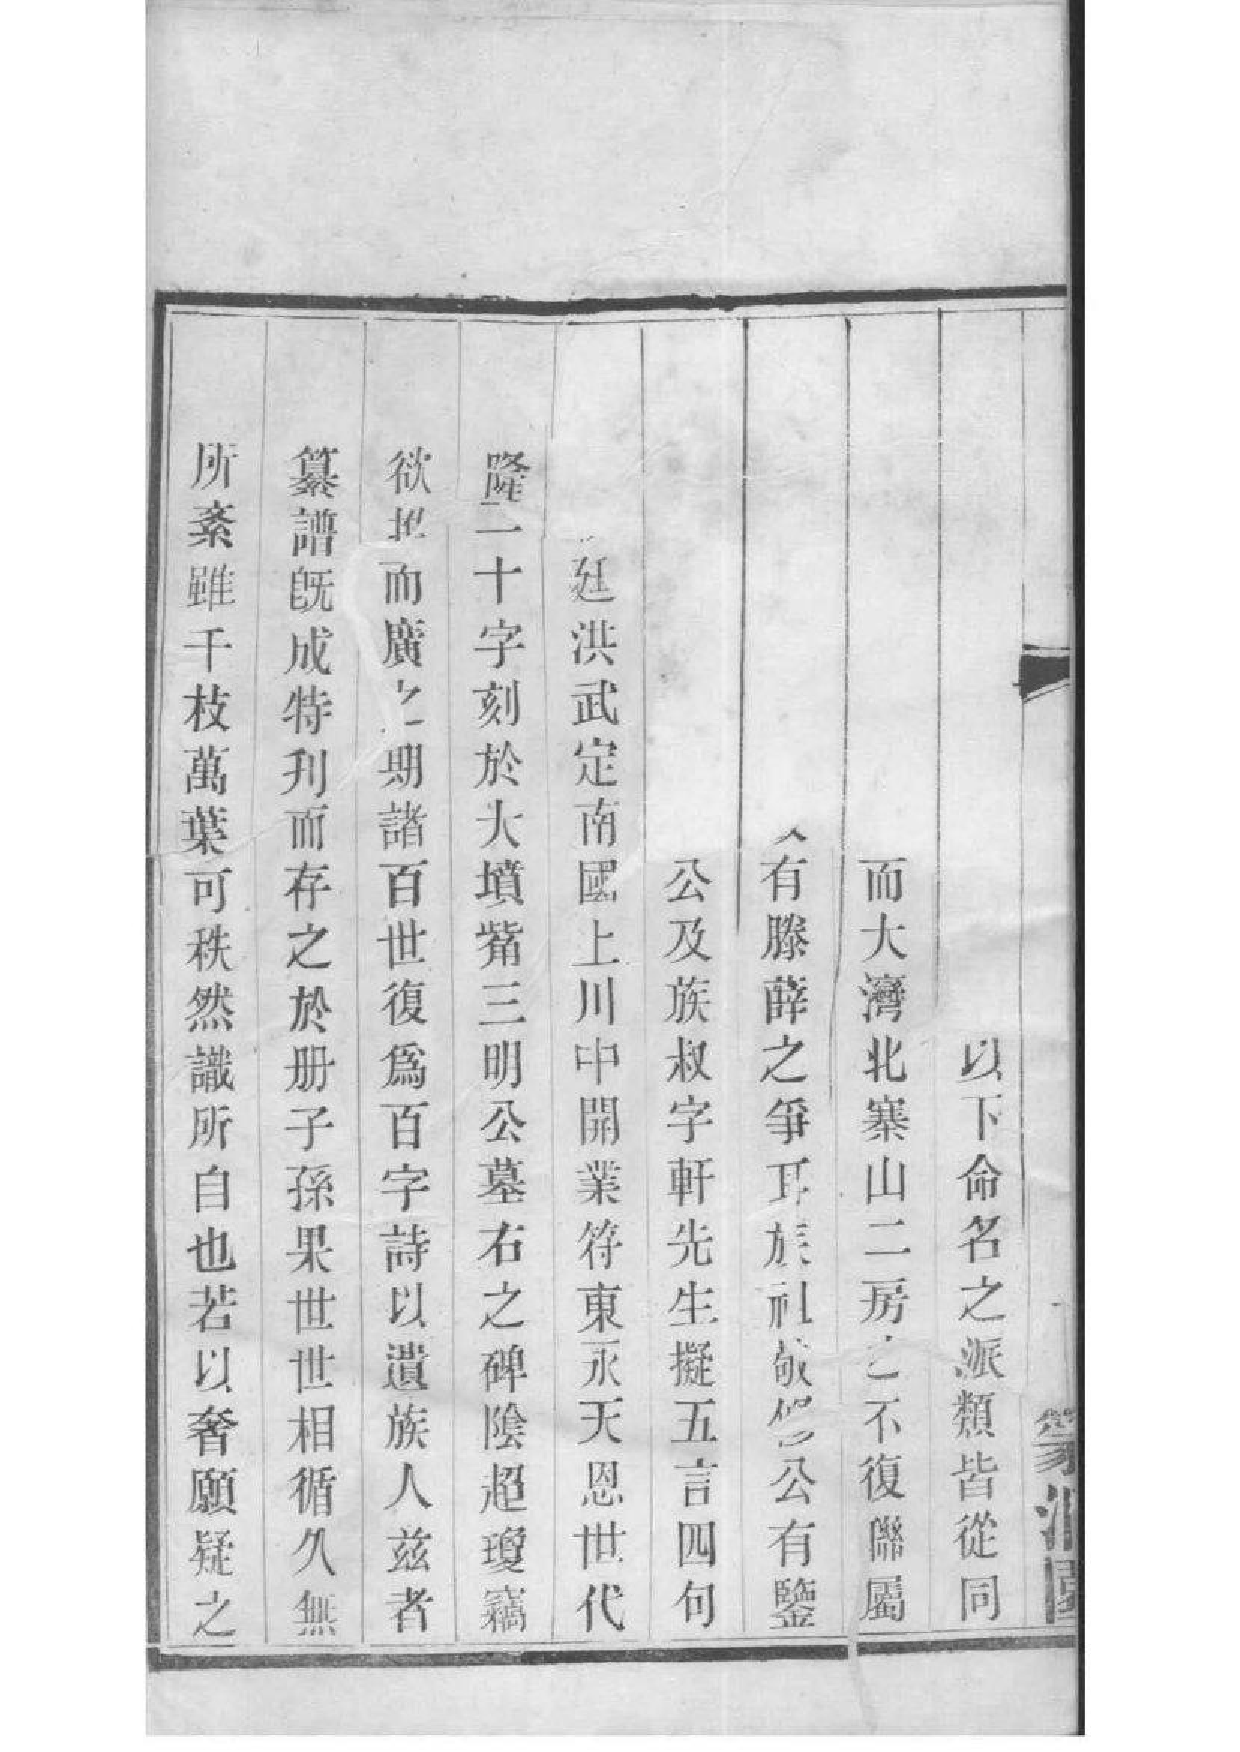 以下命名之派類皆從同
而大灣北寨山二房之不復聯屬
有滕薛之爭耳族祖敬修公有鑒
公及族叔字軒先生擬五言四句
廷洪武定南國上川中開業符東永天恩世代
隆二十字刻於大墳觜三明公墓右之碑陰超瓊竊
欲推而廣之期諸百世復爲百字詩以遺族人兹者
纂譜旣成特刋而存之於册子孫果世世相循久無
所紊雖千枝萬葉可秩然識所自也若以奢願疑之